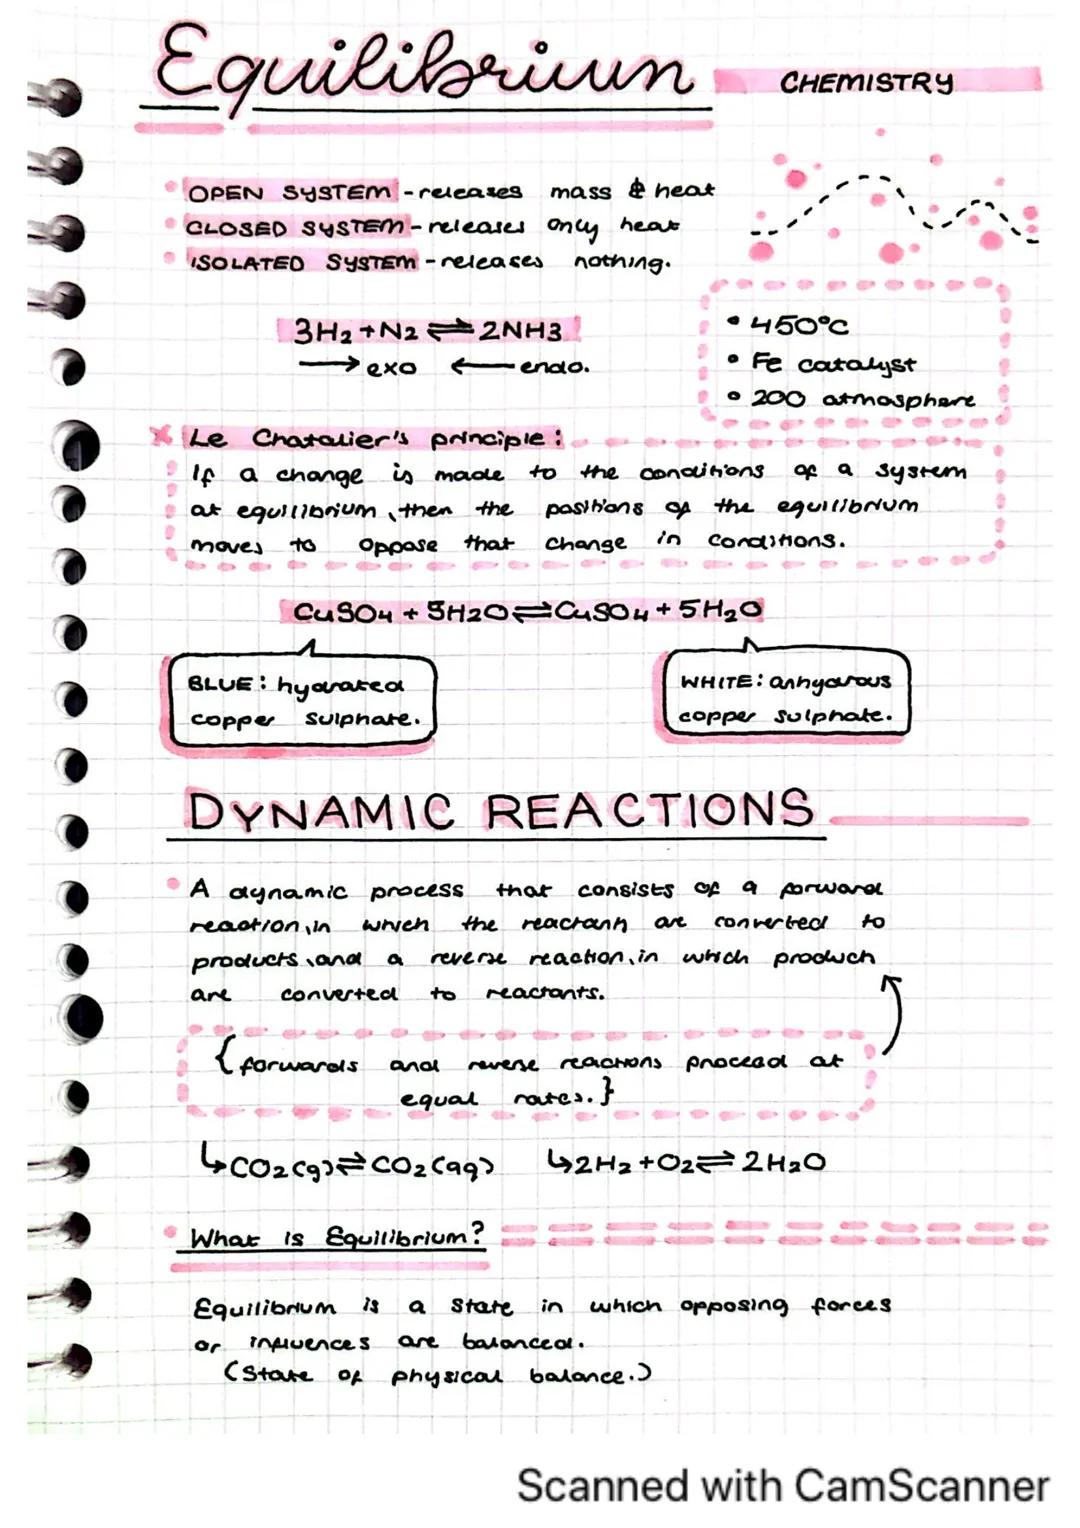 Equilibrium
CHEMISTRY
OPEN SYSTEM - releases mass & heat
CLOSED SYSTEM - releases only heat
ISOLATED SYSTEM - releases nothing.
3H2 + N2 ⇌ 2NH3
→ exo ← endo.
• 450°C
• Fe catalyst
• 200 atmosphere
Le Chatalier's principle:
If a change is made to the conditions of a system
at equilibrium, then the positions of the equilibrium
moves to oppose that change in conditions.
CuSO4 + 5H2O ⇌ CuSO4 + 5H2O
BLUE: hydrated
copper sulphate.
WHITE: anhydrous
copper sulphate.
DYNAMIC REACTIONS
• A dynamic process that consists of a forward
reaction, in which the reactants are converted to
products, and a reverse reaction, in which products
are converted to reactants.
{forwards and reverse reactions proceed at
equal rates.}
↳ CO2(g) ⇌ CO2(aq) ↳ 2H2 + O2 ⇌ 2H2O
• What is Equilibrium?
Equilibrium is a state in which opposing forces
or influences are balanced.
(State of physical balance.)
Scanned with CamScanner